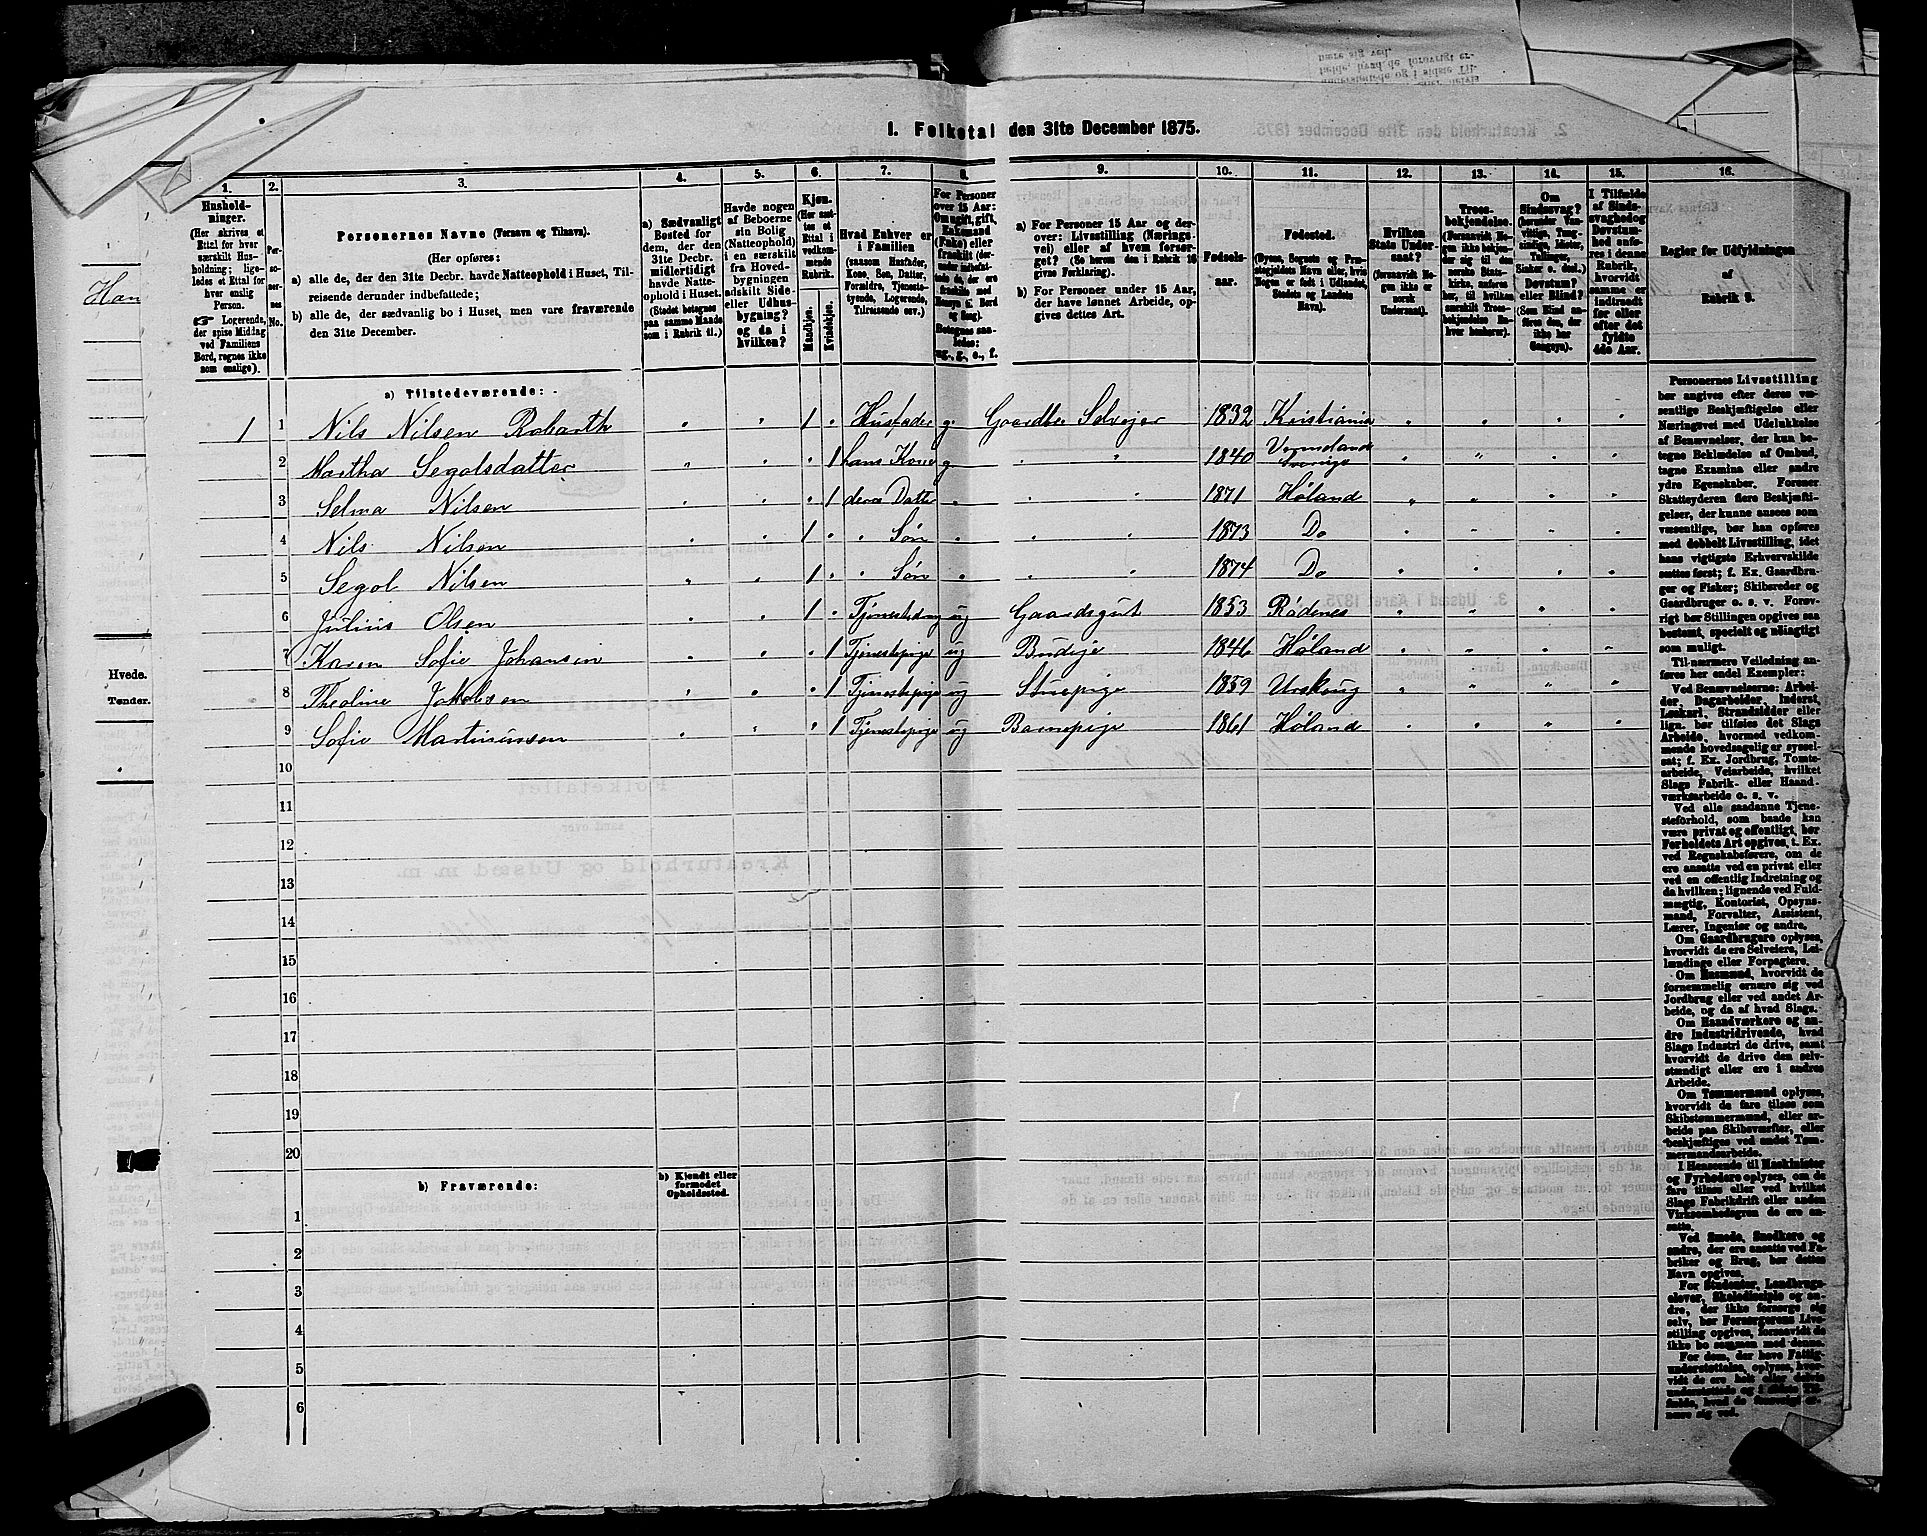 1. Folketal den 31te December 1875.
1. 2. 3. 4. 5. 6. 7. 8. 9. 10. 11. 12. 13. 14. 15. 16.
Hushold-
ninger.
(Her skrives et
Ettal for hver
særskilt Hus-
holdning; lige-
ledes et Ettal for
hver enslig
Person.
☞ Logerende,
der spise Middag
ved Familiens
Bord, regnes ikke
som enslige).
Per-
so-
ner-
nes
No.
Personernes Navne (Fornavn og Tilnavn).
(Her opføres:
a) alle de, der den 31te Decbr. havde Natteophold i Huset, Til-
reisende derunder indbefattede;
b) alle de, der sædvanlig bo i Huset, men vare fraværende
den 31te December.
a) Sædvanligt
Bosted for
dem, der den
31te Decbr.
midlertidigt
havde Natte-
ophold i Huset.
(Stedet betegnes
paa samme Maade
som i Rubrik 11.)
Havde nogen
af Beboerne
sin Bolig
(Natteophold)
i en særskilt
fra Hoved-
bygningen
adskilt Side-
eller Udhus-
bygning?
og da i
hvilken?
Kjøn.
(Her sæt-
tes et
Ettal i
vedkom-
mende
Rubrik.
Mandkjøn.
Kvindekjøn.
Hvad Enhver er
i Familien
(saasom Husfader,
Kone, Søn, Datter,
Forældre, Tjeneste-
tyende, Logerende,
Tilreisende osv.)
For Personer
over 15 Aar:
Om ugift, gift,
Enkemand
(Enke) eller
fraskilt
Betegnes saa-
ledes:
ug., g., e., f.
a) For Personer 15 Aar og der-
over: Livsstilling (Nærings-
vei) eller af hvem forsør-
get? (Se herom den i Rubrik 16
givne Forklaring).
b) For Personer under 15 Aar,
der have lønnet Arbeide, op-
gives dettes Art.
Fødsels-
aar.
Fødested.
(Byens, Sognets og Præ-
stegjældets Navn eller, hvis
Nogen er født i Udlandet,
Stedets og Landets
Navn).
Hvilken
Stats Under-
saat?
(forsaavidt No-
gen ikke er
norsk
Undersaat).
Troes-
bekjendelse.
(Forsaavidt No-
gen ikke bekjen-
der sig til den
norske Stats-
kirke, anføres
her, til hvilken
særskilt Troes-
bekjendelse En-
hver henhører).
Om
Sindssvag?
(herunder Van-
vittige, Tung-
sindige, Idioter,
Tullinger,
Sinker o. desl.)
Døvstum?
eller Blind?
(Som Blind an-
føres den, der
ikke har
Gangsyn).
I Tilfælde
af Sinds-
svaghed og
Døvstum-
hed anfø-
res i denne
Rubrik,
hvorvidt
samme er
indtraadt
før eller
efter det
fyldte
4de Aar.
Regler for Udfyldningen
af
Rubrik 9.
a) Tilstedeværende:
1 1 Nils Nilsen Robarth " " 1 " Husfader g. Gaardbr. Selveier 1832 Kristiania " " " "
2 Martha Segolsdatter " " " 1 hans Kone g. " " 1840 Vermland Sverige " " " "
3 Selma Nilsen " " " 1 deres Datter " " " 1871 Høland " " " "
4 Nils Nilsen " " 1 " " Søn " " " 1873 Do " " " "
5 Segol Nilsen " " 1 " " Søn " " " 1874 Do " " " "
6 Julius Olsen " " 1 " Tjenestedreng ug Gaardsgut 1853 Rødenes " " " "
7 Karen Sofie Johansen " " " 1 Tjenestepige ug Budeje 1846 Høland " " " "
8 Theoline Jakobsen " " " 1 Tjenestepige ug Stuepige 1859 Urskoug " " " "
9 Sofie Martinusen " " " 1 Tjenestepige ug Barnepige 1861 Høland " " " "
10
11
12
13
14
15
16
17
18
19
20
b) Fraværende:
b) Kjendt eller
formodet
Opholdssted.
1
2
3
4
5
6
Han
Hvede.
Tønder.
Personernes Livsstilling
bør angives efter deres væ-
sentlige Beskjæftigelse eller
Næringsvei med Udelukkelse
af Benævnelser, der kun be-
tegne Beklædelse af Ombud,
tagne Examina eller andre
ydre Egenskaber. Forener
Skatteyderen flere Beskjæfti-
gelser, der kunne ansees som
væsentlige, bør han opføres
med dobbelt Livsstilling, idet
hans vigtigste Erhvervskilde
sættes først; f. Ex. Gaardbru-
ger og Fisker; Skibsreder og
Gaardbruger o. s. v. Forøv-
rigt bør Stillingen opgives saa
bestemt, specielt og nøiagtigt
som muligt.
Til nærmere Veiledning an-
føres her endel Exempler:
Ved Benævnelserne: Arbei-
der, Dagarbeider, Inderst,
Løskarl, Strandsidder eller
lign. bør tilføies det Slags
Arbeide, hvormed vedkom-
mende hovedsagelig er syssel-
sat; f. Ex. Jordbrug, Tomte-
arbeide, Veiarbeide, hvilket
Slags Fabrik- eller Haand-
værksarbeide o. s. v.
Ved alle saadanne Tjene-
steforhold, som baade kan
være privat og offentligt, bør
Forholdets Art opgives, t. Ex.
ved Regnskabsførere, om de
ere ansatte ved en privat eller
ved en offentlig Indretning og
da hvilken; lignende ved Fuld-
mægtig, Kontorist, Opsyns-
mand, Forvalter, Assistent,
Lærer, Ingeniør og andre.
Om Gaardbrugere oplyses,
hvorvidt de ere Selveiere, Lei-
lændinge eller Forpagtere.
Om Husmænd, hvorvidt de
fornemmelig ernære sig ved
Jordbrug eller ved andet Ar-
beide, og da af hvad Slags.
Om Haandværkere og an-
dre Industridrivende, hvad
Slags Industri de drive, samt
hvorvidt de drive den selv-
stændigt eller ere i andres
Arbeide.
Om Tømmermænd oplyses,
hvorvidt de fare tilsøs som
Skibstømmermænd, eller ar-
beide paa Skibsværfter, eller
beskjæftiges ved andet Tøm-
mermandsarbeide.
I Henseende til Maskinister
og Fyrbødere oplyses, om de
fare tilsøs eller ved hvilket
Slags Fabrikdrift eller anden
Virksombedsgren de ere an-
satte.
Ved Smede, Snedkere og
andre, der ere ansatte ved Fa-
briker og Brug, bør dettes
Navn opgives.
For Studenter, Landbrugs-
elever, Skoledisciple og an-
dre, der ikke forsørge sig
selv, bør Forsørgerens Livs-
stilling opgives, forsaavidt de
ikke bo sammen med denne.
For dem, der have Fattig-
understøttelse, oplyses, hvor-
vidt de ere helt eller delvis
understøttede og i sidste Til-
fælde, hvad de forøvrigt er-
nære sig ved.